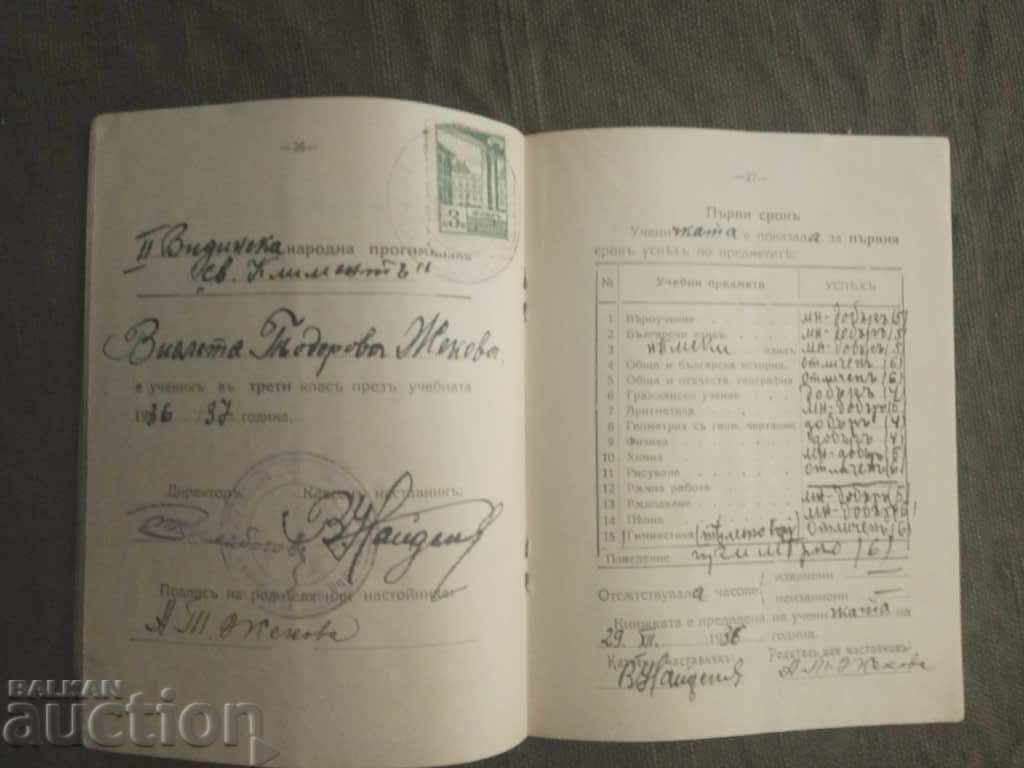 —26—
3
II Видинска народна прогимназия
„св. Климентъ“
Виолета Тодорова Жекова
е ученикъ въ трети класъ презъ учебната
1936/37 година.
Директоръ: Класенъ наставникъ:
В Найденъ
Подписъ на родителя или настойника:
А. Т. Жекова
—27—
Първи срокъ
Ученичката е показала за първия
срокъ успѣхъ по предметитѣ:
№ Учебни предмети УСПѢХЪ
1 Вѣроучение мн-добъръ (5)
2 Български езикъ мн-добъръ (5)
3 Нѣмски езикъ мн-добъръ (5)
4 Обща и българска история отличенъ (6)
5 Обща и отечеств. география отличенъ (6)
6 Гражданско учение добъръ (4)
7 Аритметика мн-добъръ (5)
8 Геометрия съ геом. чертание добъръ (4)
9 Физика добъръ (4)
10 Химия мн-добъръ (5)
11 Рисуване отличенъ (6)
12 Ржчна работа
13 Краснописъ мн-добъръ (5)
14 Пѣние мн-добъръ (5)
15 Гимнастика отличенъ (6)
Поведение примѣрно (6)
Отсѫтствувала часове: извинени —
неизвинени —
Книжката е предадена на ученичката на
29. XII. 1936 година.
Класенъ наставникъ: Родитель или настойникъ:
В Найденъ А. Т. Жекова
BALKAN
auction